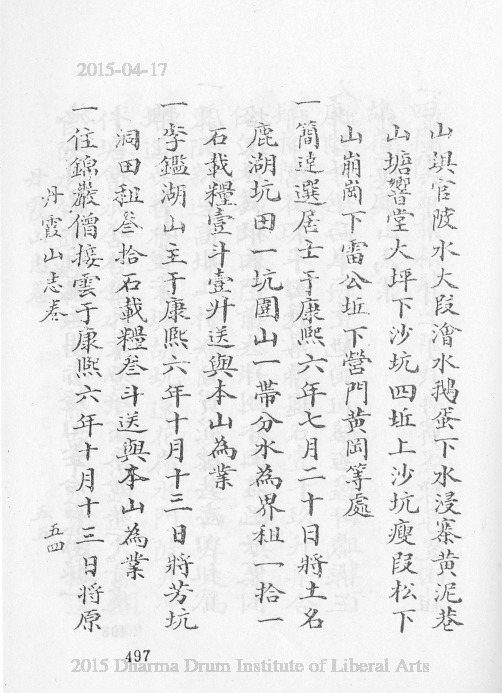 2015-04-17
山墺官陂水大段澮水鵝蛋下水浸寨黃泥巷
山塘響堂大坪下沙坑四坵上沙坑瘦段松下
山崩崗下雷公坵下營門黃岡等處
一簡達選居士于康熙六年七月二十日將土名
鹿湖坑田一坑圍山一帶分水為界租一拾一
石載糧壹斗壹升送與本山為業
一李鑑湖山主于康熙六年十月十三日將芳坑
洞田租叁拾石載糧叁斗送與本山為業
一住錦巖僧接雲于康熙六年十月十三日將原
丹霞山志卷
五四
497
2015 Dharma Drum Institute of Liberal Arts